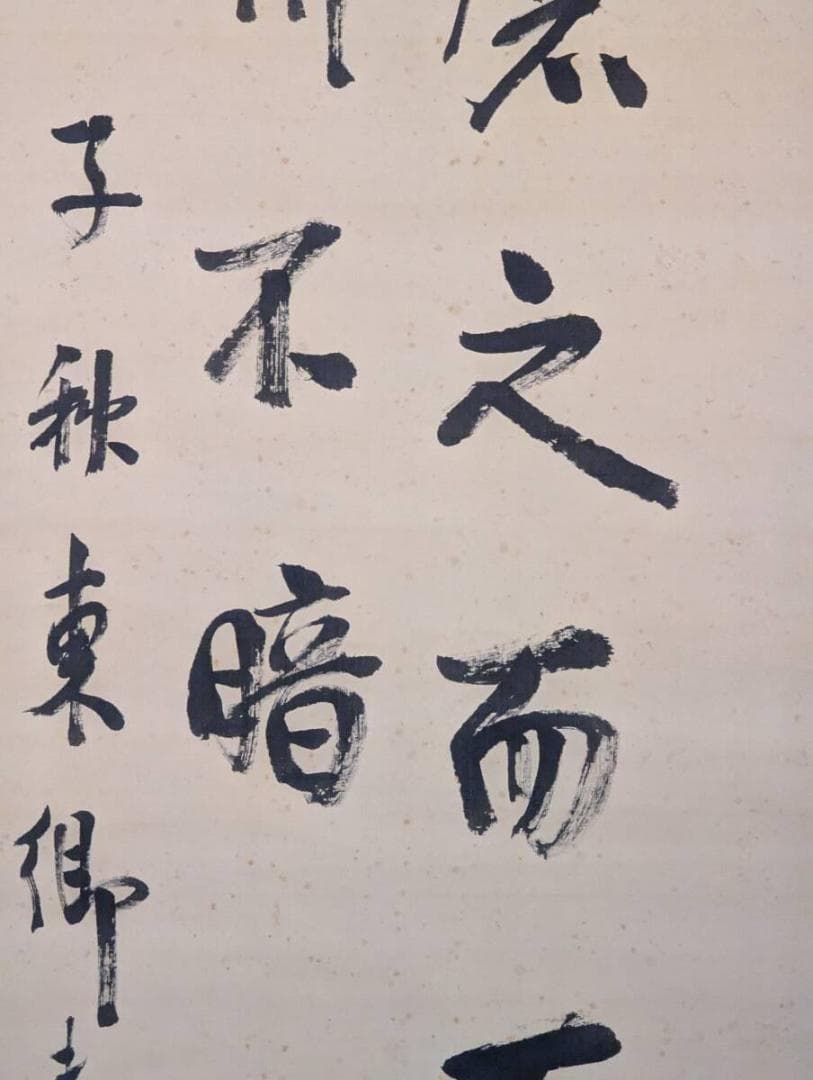 之而
不暗
子秋東郷